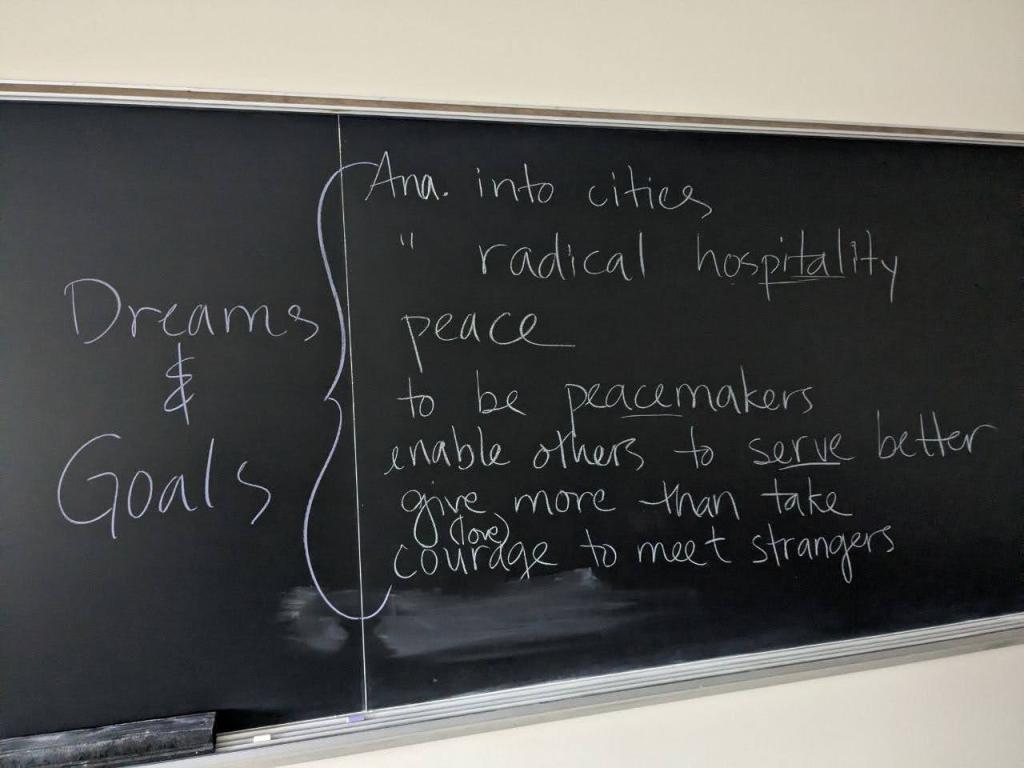 Dreams
&
Goals
Ana. into cities
" radical hospitality
peace
to be peacemakers
enable others to serve better
give more than take
(love)
courage to meet strangers